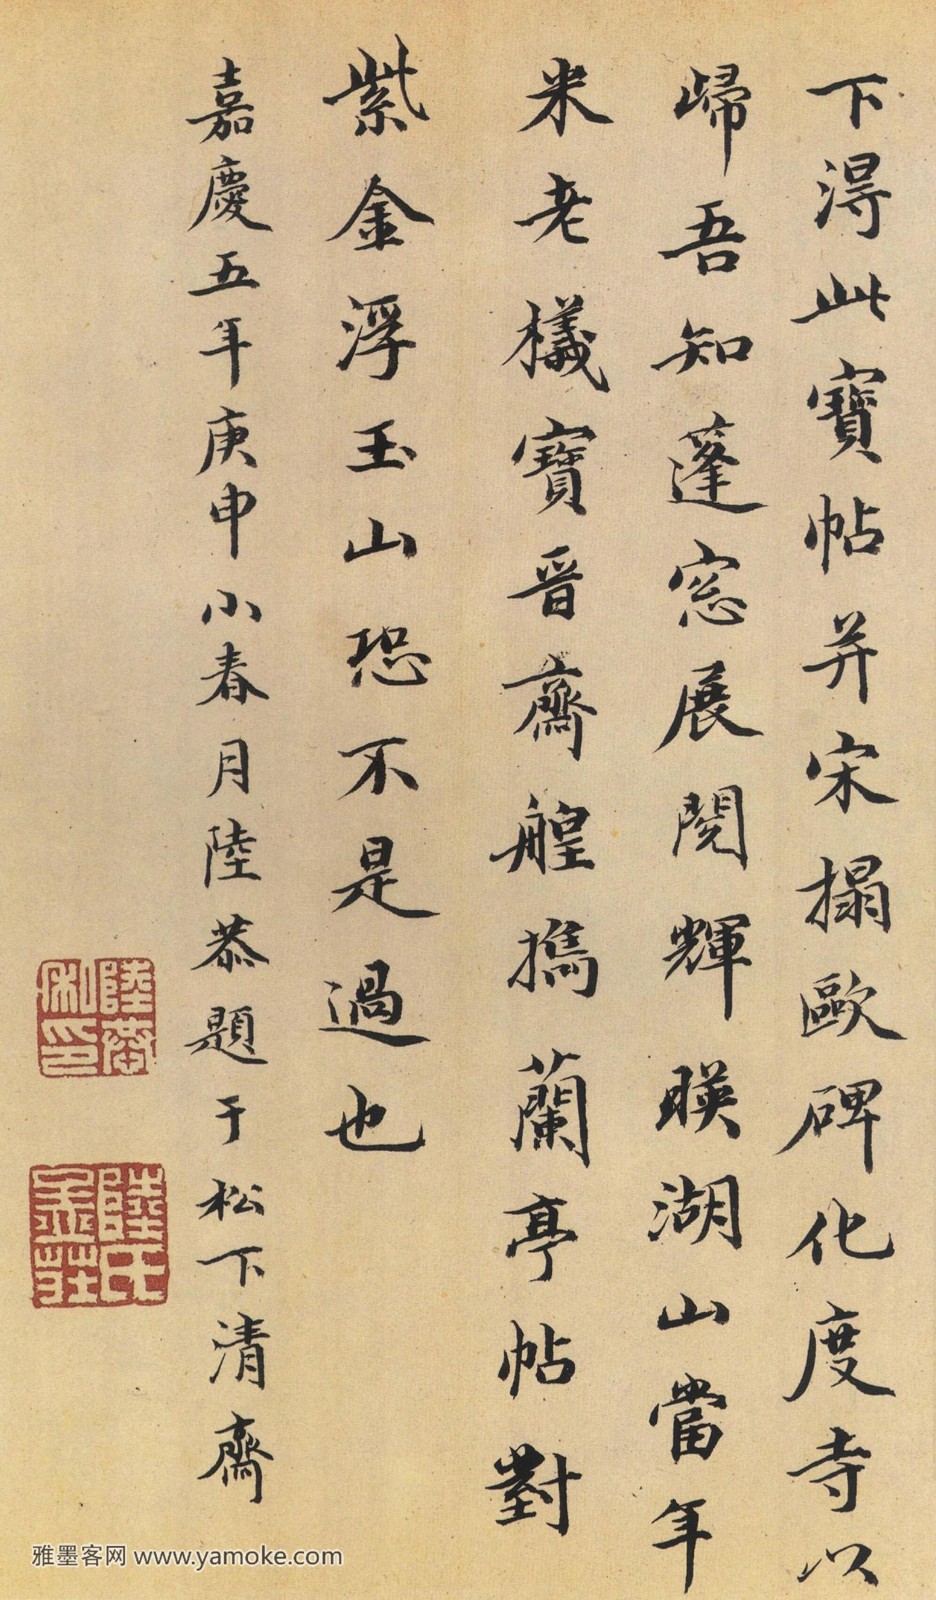 下得此寶帖并宋搨歐碑化度寺以
歸吾知蓬窓展閱輝暎湖山當年
米老檥寶晉齋艎擕蘭亭帖對
紫金浮玉山恐不是過也
嘉慶五年庚申小春月陸恭題于松下清齋
陸恭私印
陸氏
雅墨客网 www.yamoke.com